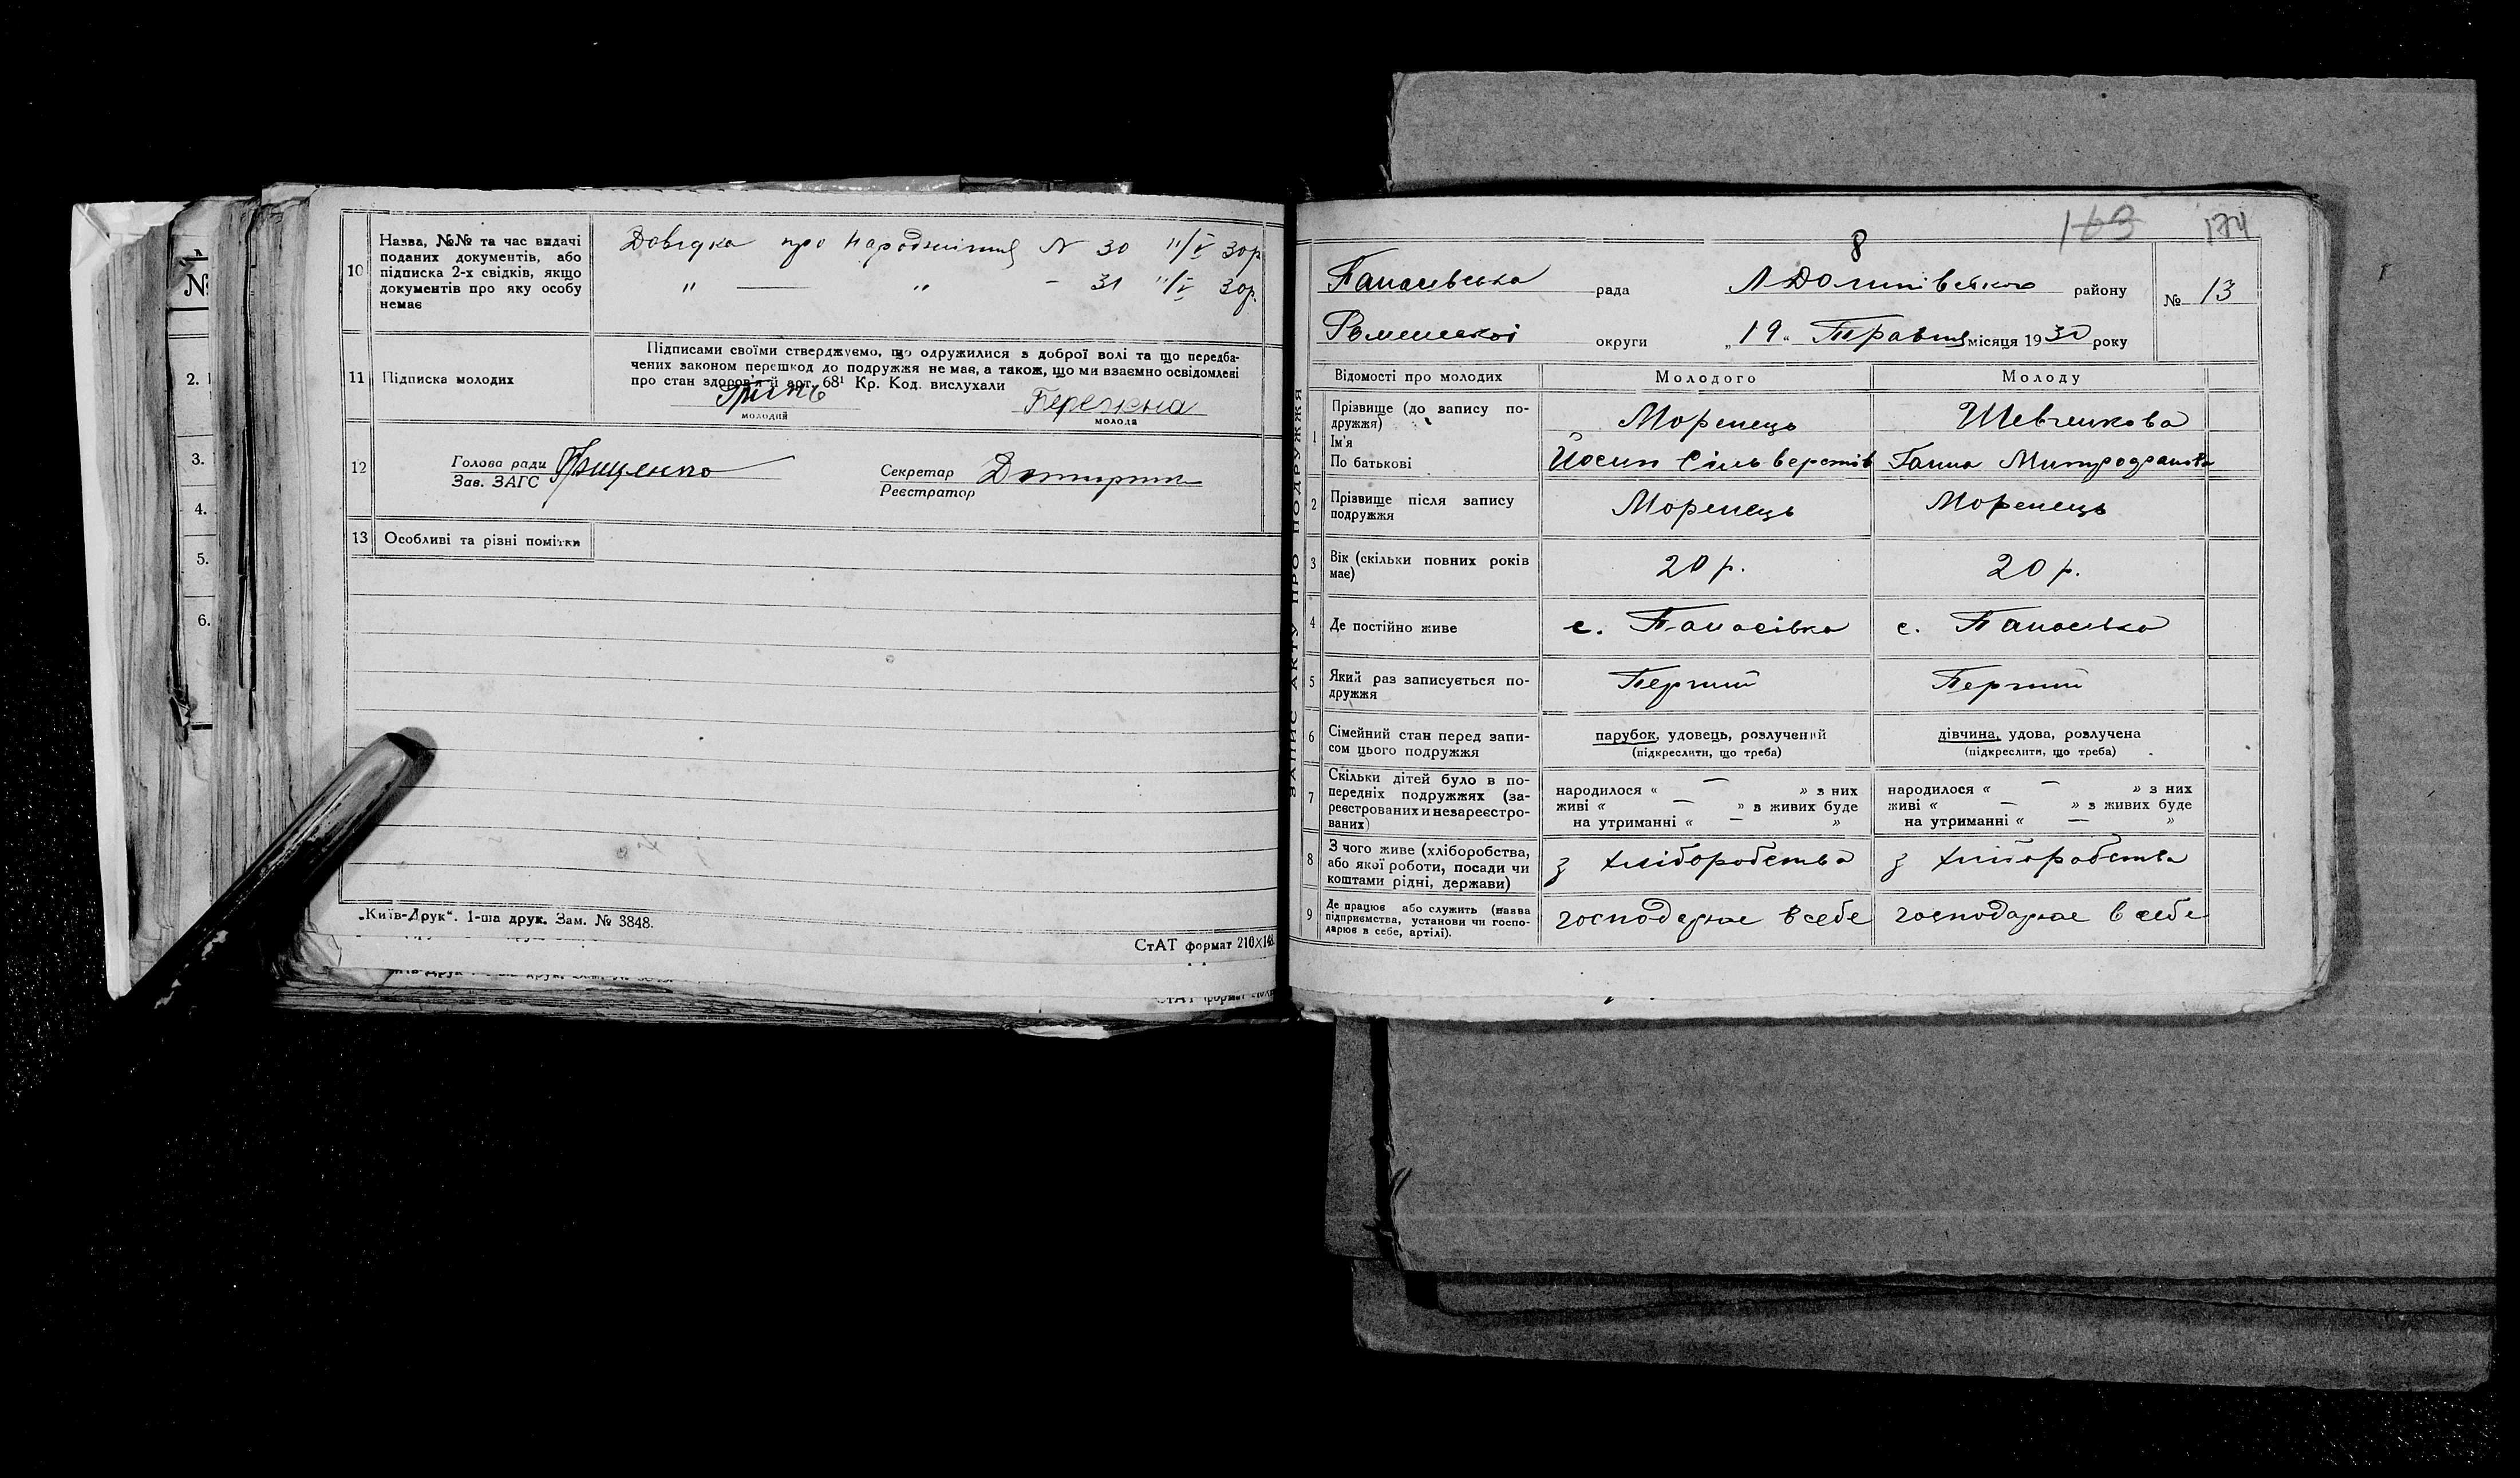 №
2.
3.
4.
5.
6.
10 Назва, №№ та час видачі
поданих документів, або
підписка 2-х свідків, якщо
документів про яку особу
немає
Довідка про народження N 30 11/V 30р
" —— " - 31 11/V 30р.
11 Підписка молодих
Підписами своїми стверджуємо, що одружилися з доброї волі та що передба-
чених законом перешкод до подружжя не має, а також, що ми взаємно освідомлені
про стан здоров'я й арт. 68¹ Кр. Код. вислухали
Гринь
молодий
Бережна
молода
12 Голова ради Грищенко
Зав. ЗАГС
Секретар
Реєстратор
13 Особливі та різні помітки
„Київ-Друк". 1-ша друк. Зам. № 3848.
СтАТ формат 210×148
163 174
8
Панасівська рада Л Долинівського району № 13
Роменської округи „19" Травня місяця 1930 року
ЗАПИС АКТУ ПРО ПОДРУЖЖЯ
Відомості про молодих Молодого Молоду
1 Прізвище (до запису по-
дружжя) Моренець Шевченкова
Ім'я
По батькові Йосип Сільверстів Ганна Митрофанова
2 Прізвище після запису
подружжя Моренець Моренець
3 Вік (скільки повних років
має) 20 р. 20 р.
4 Де постійно живе с. Панасівка с. Панасівка
5 Який раз записується по-
дружжя Перший Перший
6 Сімейний стан перед запи-
сом цього подружжя
парубок, удовець, розлучений
(підкреслити, що треба)
дівчина, удова, розлучена
(підкреслити, що треба)
7 Скільки дітей було в по-
передніх подружжях (за-
реєстрованих и незареєстро-
ваних)
народилося « — » з них
живі « — » з живих буде
на утриманні « — »
народилося « — » з них
живі « — » з живих буде
на утриманні « — »
8 З чого живе (хліборобства,
або якої роботи, посади чи
коштами рідні, держави)
з хліборобства з хліборобства
9 Де працює або служить (назва
підприємства, установи чи госпо-
дарює в себе, артілі).
господарює в себе господарює в себе